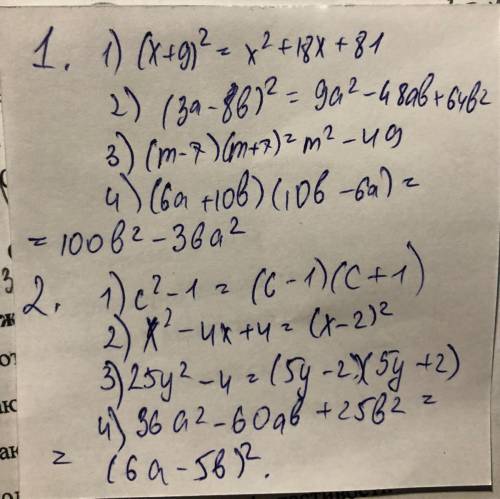 1. 1) (x+9)² = x²+18x+81
2) (3a-8b)² = 9a²-48ab+64b²
3) (m-7)(m+7)= m²-49
4) (6a+10b)(10b-6a)=
=100b²-36a²
2. 1) c²-1 = (c-1)(c+1)
2) x²-4x+4=(x-2)²
3) 25y²-4=(5y-2)(5y+2)
4) 36a²-60ab+25b²=
= (6a-5b)².